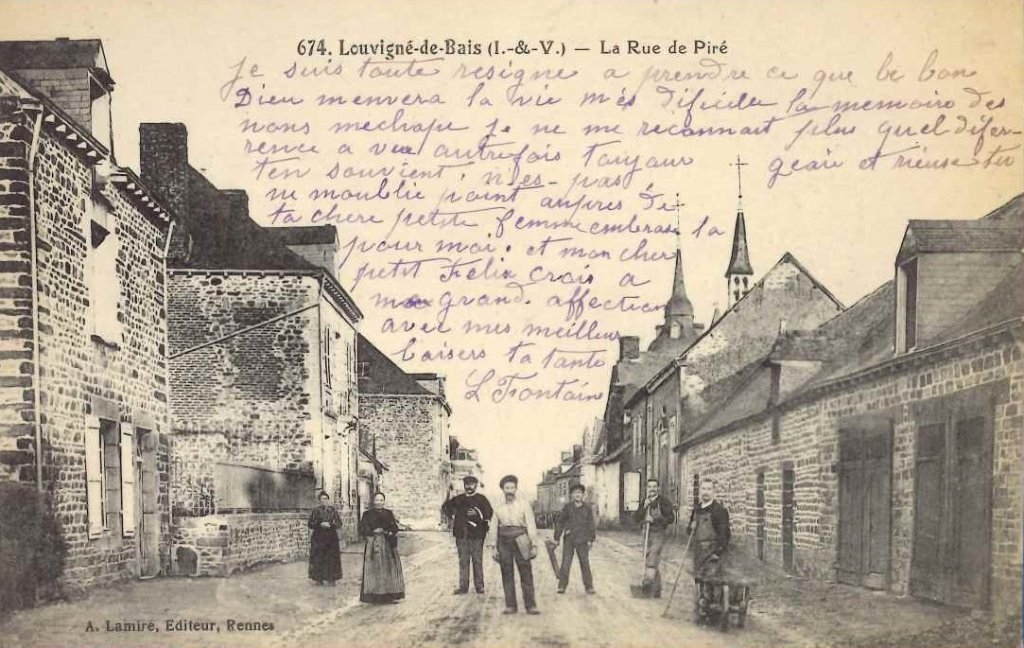 674. Louvigné-de-Bais (I.-&-V.) — La Rue de Piré
Je suis toute resigne a prendre ce que le bon
Dieu menvera la vie m'és dificile la memoire des
noms mechape je ne me reconnait plus quel difer-
rence a vec autrefois toujour geaie et rieuse tu
t'en souvient n'es-pas
ne m'oublie point aupres de
ta chere petite femme embrase la
pour moi. et mon cher
petit Felix crois a
grand. affection
avec mes meilleur
baisers ta tante
L Fontain
A. Lamiré, Editeur, Rennes